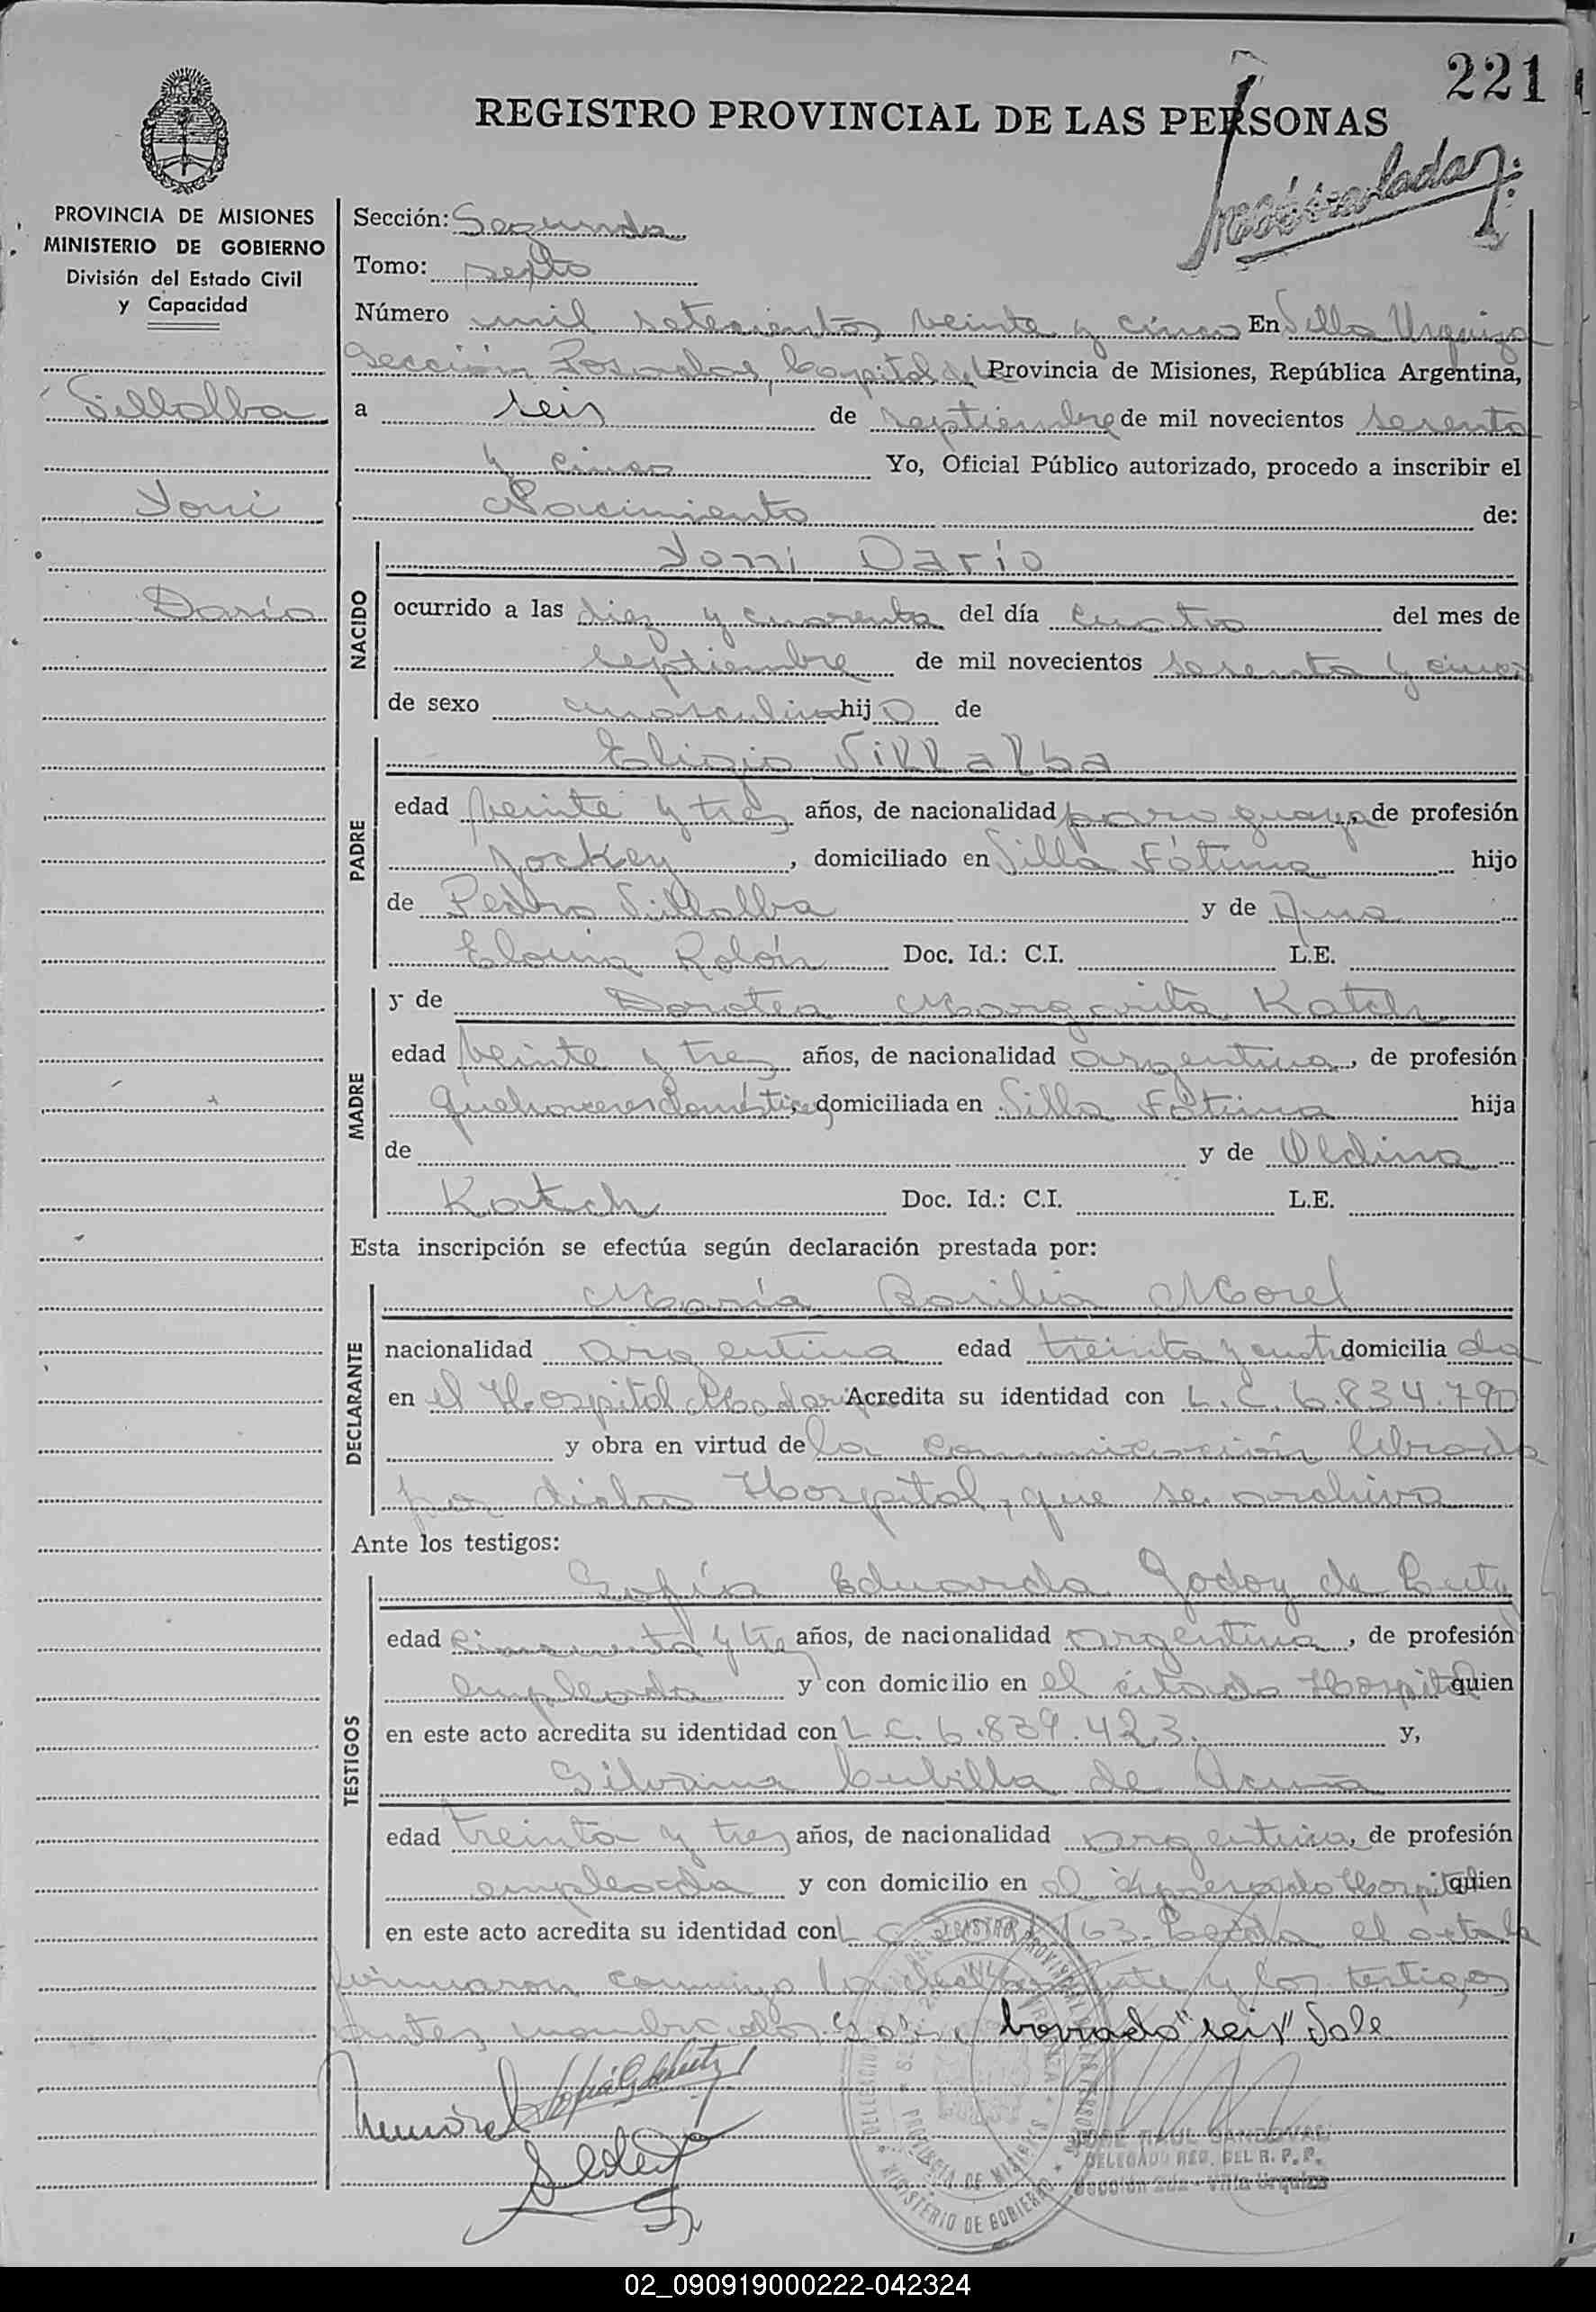 221
REGISTRO PROVINCIAL DE LAS PERSONAS
PROVINCIA DE MISIONES
MINISTERIO DE GOBIERNO
División del Estado Civil
y Capacidad
Villalba
Yoni
Darío
Sección: Segunda
Tomo: sexto
Número mil setecientos veinte y cinco En Villa Urquiza
Sección Posadas, Capital de la Provincia de Misiones, República Argentina,
a seis de septiembre de mil novecientos sesenta
y cinco Yo, Oficial Público autorizado, procedo a inscribir el
Nacimiento de:
NACIDO
Yoni Darío
ocurrido a las diez y cuarenta del día cuatro del mes de
septiembre de mil novecientos sesenta y cinco
de sexo masculino hijo de
PADRE
Eligio Villalba
edad veinte y tres años, de nacionalidad paraguaya, de profesión
Jockey, domiciliado en Villa Fátima hijo
de Pedro Villalba y de Ana
Rolón Doc. Id.: C.I. L.E.
MADRE
y de Dorotea Margarita Katch
edad veinte y tres años, de nacionalidad argentina, de profesión
quehaceres domésticos, domiciliada en Villa Fátima hija
de y de Oldina
Katch Doc. Id.: C.I. L.E.
Esta inscripción se efectúa según declaración prestada por:
DECLARANTE
María Basilia Morel
nacionalidad argentina edad treinta y cuatro domiciliada
en el Hospital Madariaga Acredita su identidad con L.C. 6.834.790
y obra en virtud de la comunicación librada
por dicho Hospital, que se archiva
Ante los testigos:
TESTIGOS
Sofía Eduarda Godoy de
edad cincuenta y tres años, de nacionalidad argentina, de profesión
empleada y con domicilio en el citado Hospital quien
en este acto acredita su identidad con L.C. 6.839.423. y,
Silvina Cubilla de Acuña
edad treinta y tres años, de nacionalidad argentina, de profesión
empleada y con domicilio en el Hospital quien
en este acto acredita su identidad con L.C. 163. el acta la
firmaron conmigo la y los testigos
antes nombrados. borrado "seis" Vale
JOSE RAUL SANDOVAL
DELEGADO REG. DEL R. P. P.
Sección 2da - Villa Urquiza
PROVINCIA DE MISIONES
MINISTERIO DE GOBIERNO
02_090919000222-042324